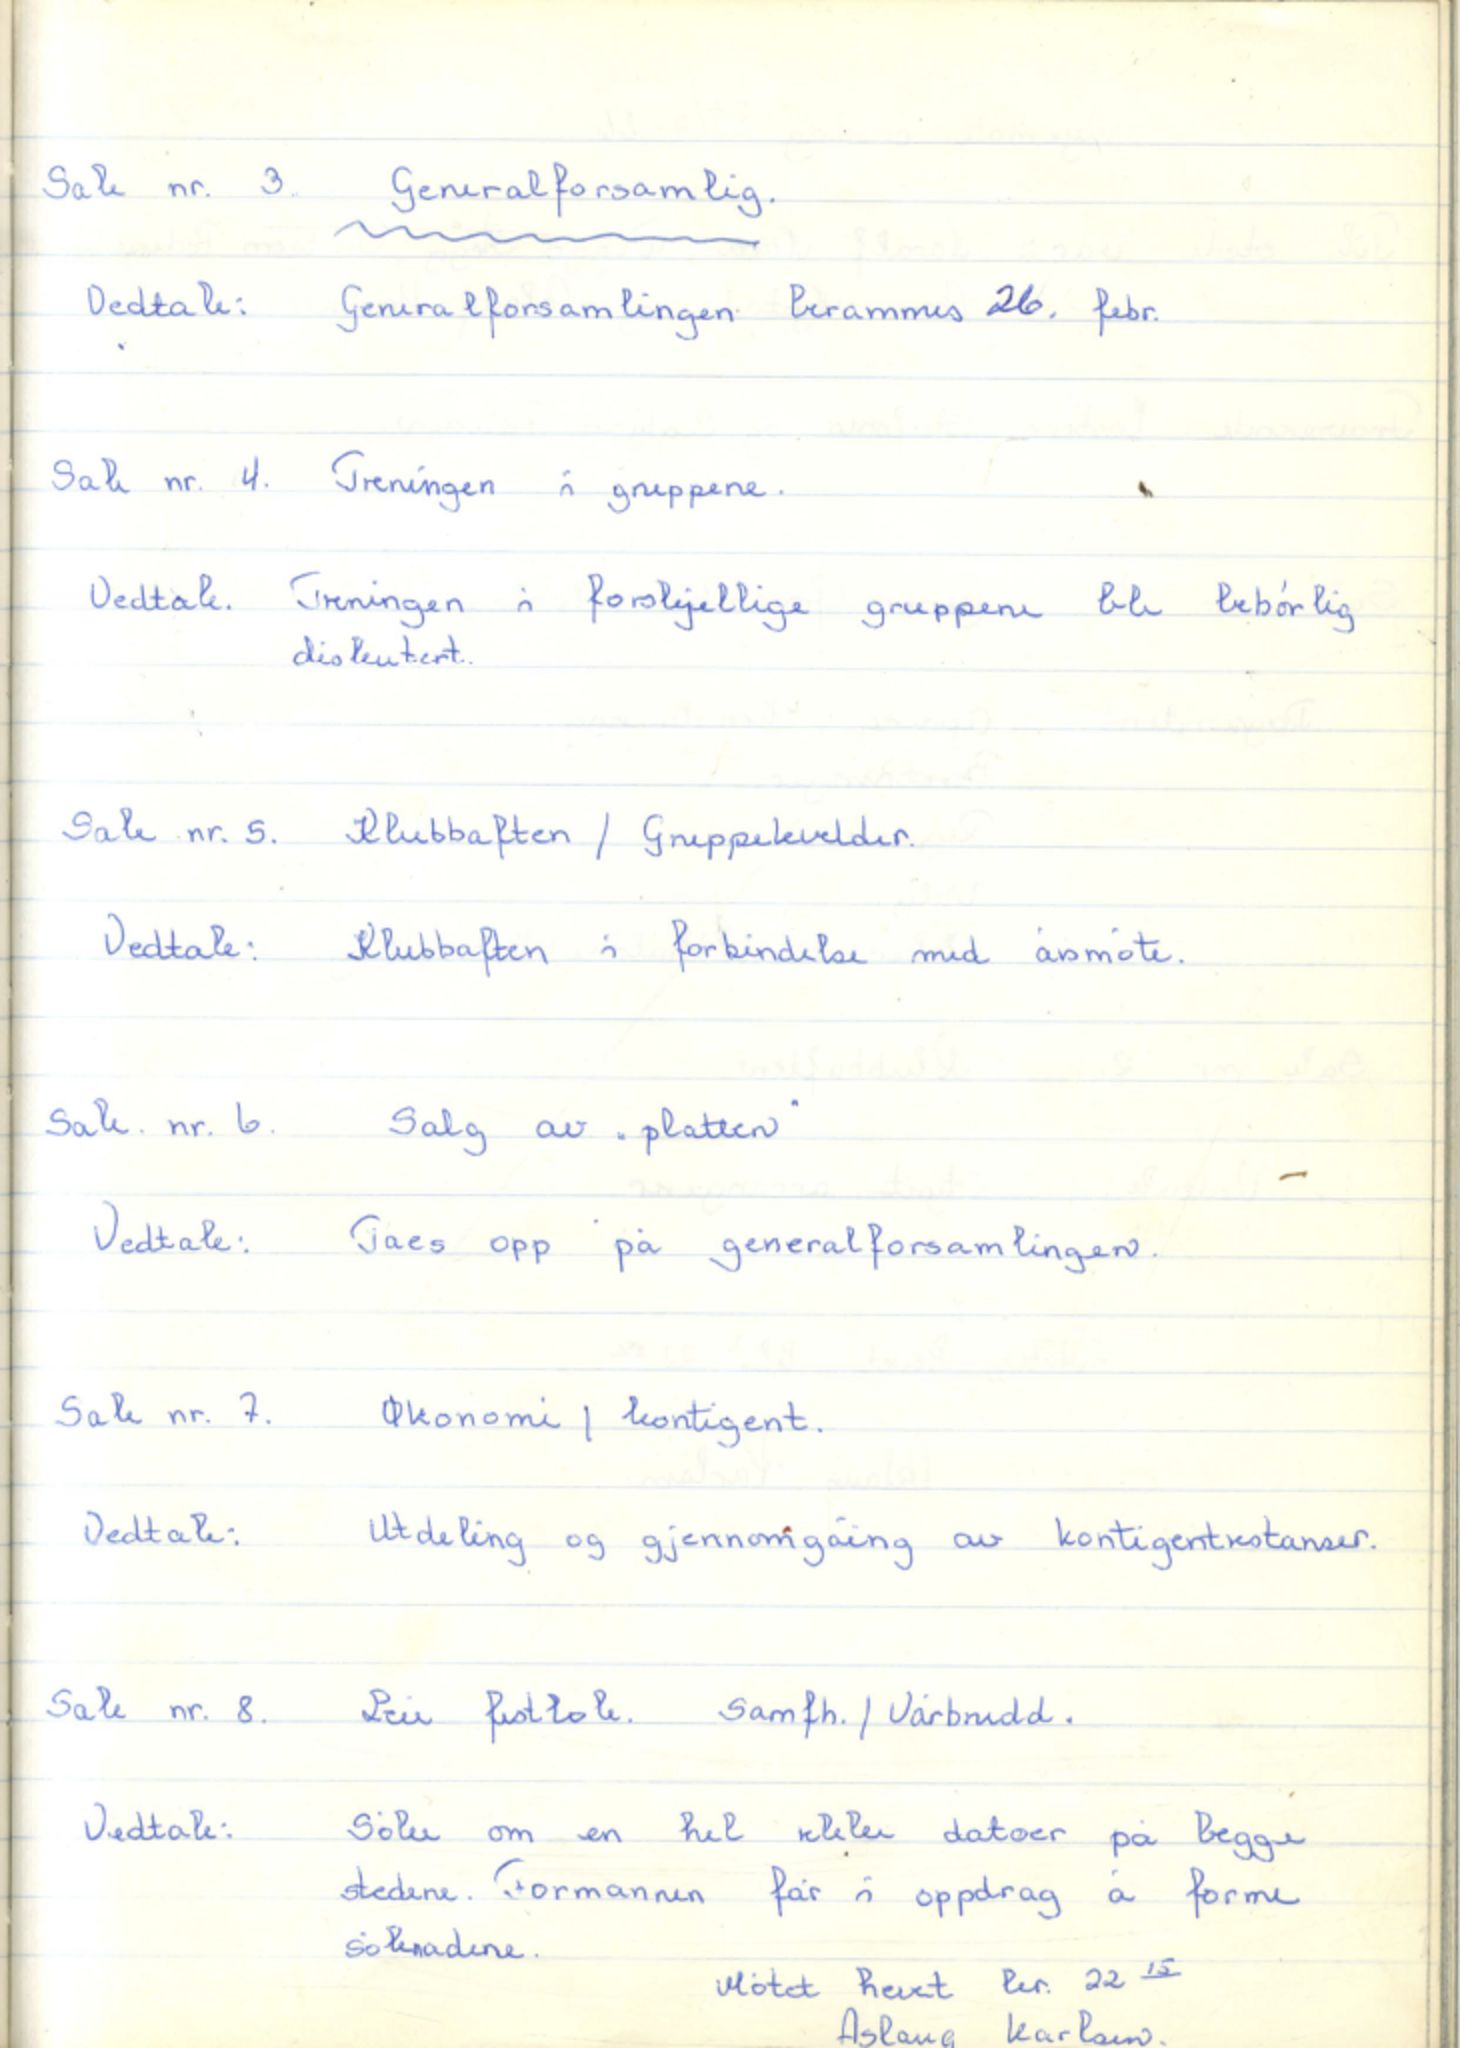 Sak nr. 3. Generalforsamlig.
Vedtak: Generalforsamlingen berammes 26. febr.
Sak nr. 4. Treningen i gruppene.
Vedtak. Treningen i forskjellige gruppene ble behørlig
diskutert.
Sak nr. 5. Klubbaften / Gruppekvelder.
Vedtak: Klubbaften i forbindelse med årsmøte.
Sak. nr. 6. Salg av "platten"
Vedtak: Taes opp på generalforsamlingen.
Sak nr. 7. Økonomi / kontigent.
Vedtak: Utdeling og gjennomgåing av kontigentrestanser.
Sak nr. 8. Leie festlok. Samfh. / Vårbrudd.
Vedtak: Søke om en hel rekke datoer på begge
stedene. Formannen får i oppdrag å forme
søknadene.
Møtet hevet kr. 22 15
Aslaug Karlsen.